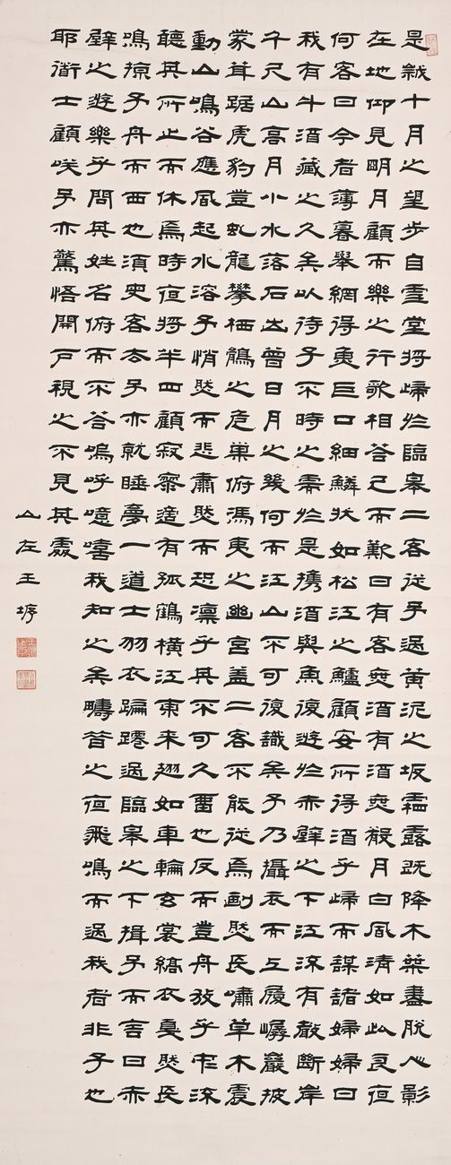 是歲十月之望步自雪堂將歸於臨皋二客從予過黃泥之坂霜露既降木葉盡脫人影
在地仰見明月顧而樂之行歌相答已而歎曰有客無酒有酒無殽月白風清如此良夜
何客曰今者薄暮舉網得魚巨口細鱗狀如松江之鱸顧安所得酒乎歸而謀諸婦婦曰
我有斗酒藏之久矣以待子不時之需於是攜酒與魚復遊於赤壁之下江流有聲斷岸
千尺山高月小水落石出曾日月之幾何而江山不可復識矣予乃攝衣而上履巉巖披
蒙茸踞虎豹登虬龍攀栖鶻之危巢俯馮夷之幽宮蓋二客不能從焉劃然長嘯草木震
動山鳴谷應風起水涌予悄然而悲肅然而恐凜乎其不可久留也反而登舟放乎中流
聽其所止而休焉時夜將半四顧寂寥適有孤鶴橫江東來翅如車輪玄裳縞衣戛然長
鳴掠予舟而西也須臾客去予亦就睡夢一道士羽衣蹁躚過臨皋之下揖予而言曰赤
壁之遊樂乎問其姓名俯而不答嗚呼噫嘻我知之矣疇昔之夜飛鳴而過我者非子也
耶道士顧笑予亦驚悟開戶視之不見其處
山左王垿